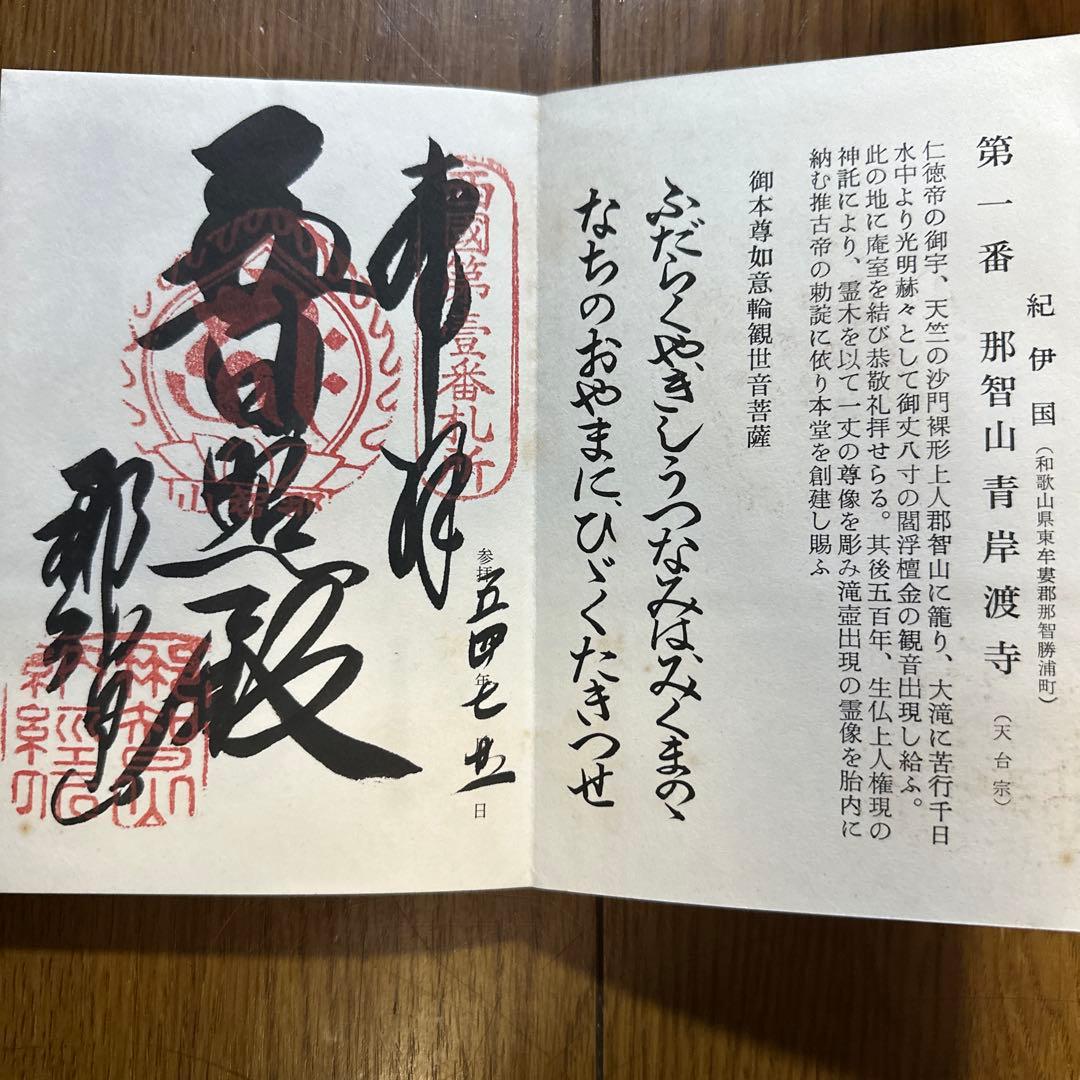 紀伊国(和歌山県東牟婁郡那智勝浦町)
第一番 那智山青岸渡寺(天台宗)
仁徳帝の御宇、天竺の沙門裸形上人郡智山に籠り、大滝に苦行千日
水中より光明赫々として御丈八寸の閻浮檀金の観音出現し給ふ。
此の地に庵室を結び恭敬礼拝せらる。其後五百年、生仏上人権現の
神託により、霊木を以て一丈の尊像を彫み滝壺出現の霊像を胎内に
納む推古帝の勅諚に依り本堂を創建し賜ふ
御本尊如意輪観世音菩薩
ふだらくやきしうつなみはみくまのゝ
なちのおやまに、ひゞくたきつせ
西國第壹番札所
奉拝
参拝五四年七 廿一日
普照殿
那智山
那智山